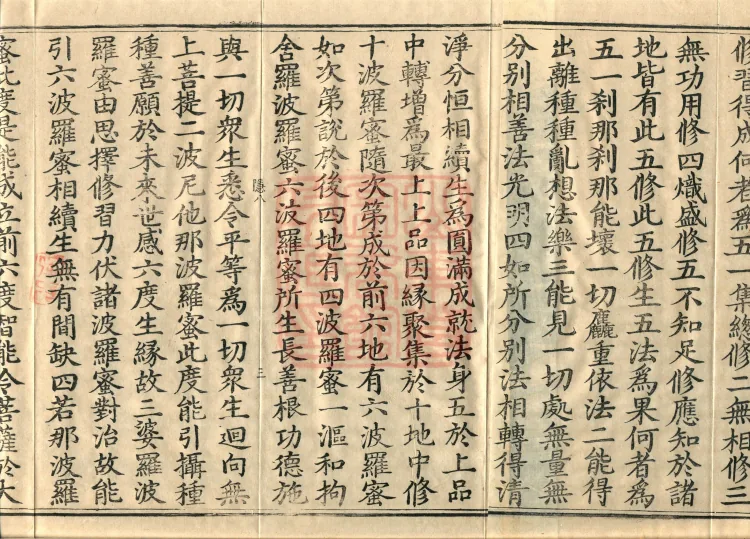 修習得成何者爲五一集總修二無相修三
無功用修四熾盛修五不知足修應知於諸
地皆有此五修此五修生五法爲果何者爲
五一刹那刹那能壞一切麤重依法二能得
出離種種亂想法樂三能見一切處無量無
分別相善法光明四如所分別法相轉得清
淨分恒相續生爲圓滿成就法身五於上品
中轉增爲最上上品因縁聚集於十地中修
十波羅蜜隨次第成於前六地有六波羅蜜
如次第說於後四地有四波羅蜜一漚和拘
舍羅波羅蜜六波羅蜜所生長善根功德施
隱八
三
與一切衆生悉令平等為一切衆生迴向無
上菩提二波尼他那波羅蜜此度能引攝種
種善願於未來世感六度生縁故三婆羅波
羅蜜由思擇修習力伏諸波羅蜜對治故能
引六波羅蜜相續生無有間缺四若那波羅
蜜此度是能成立前六度智能令菩薩於大